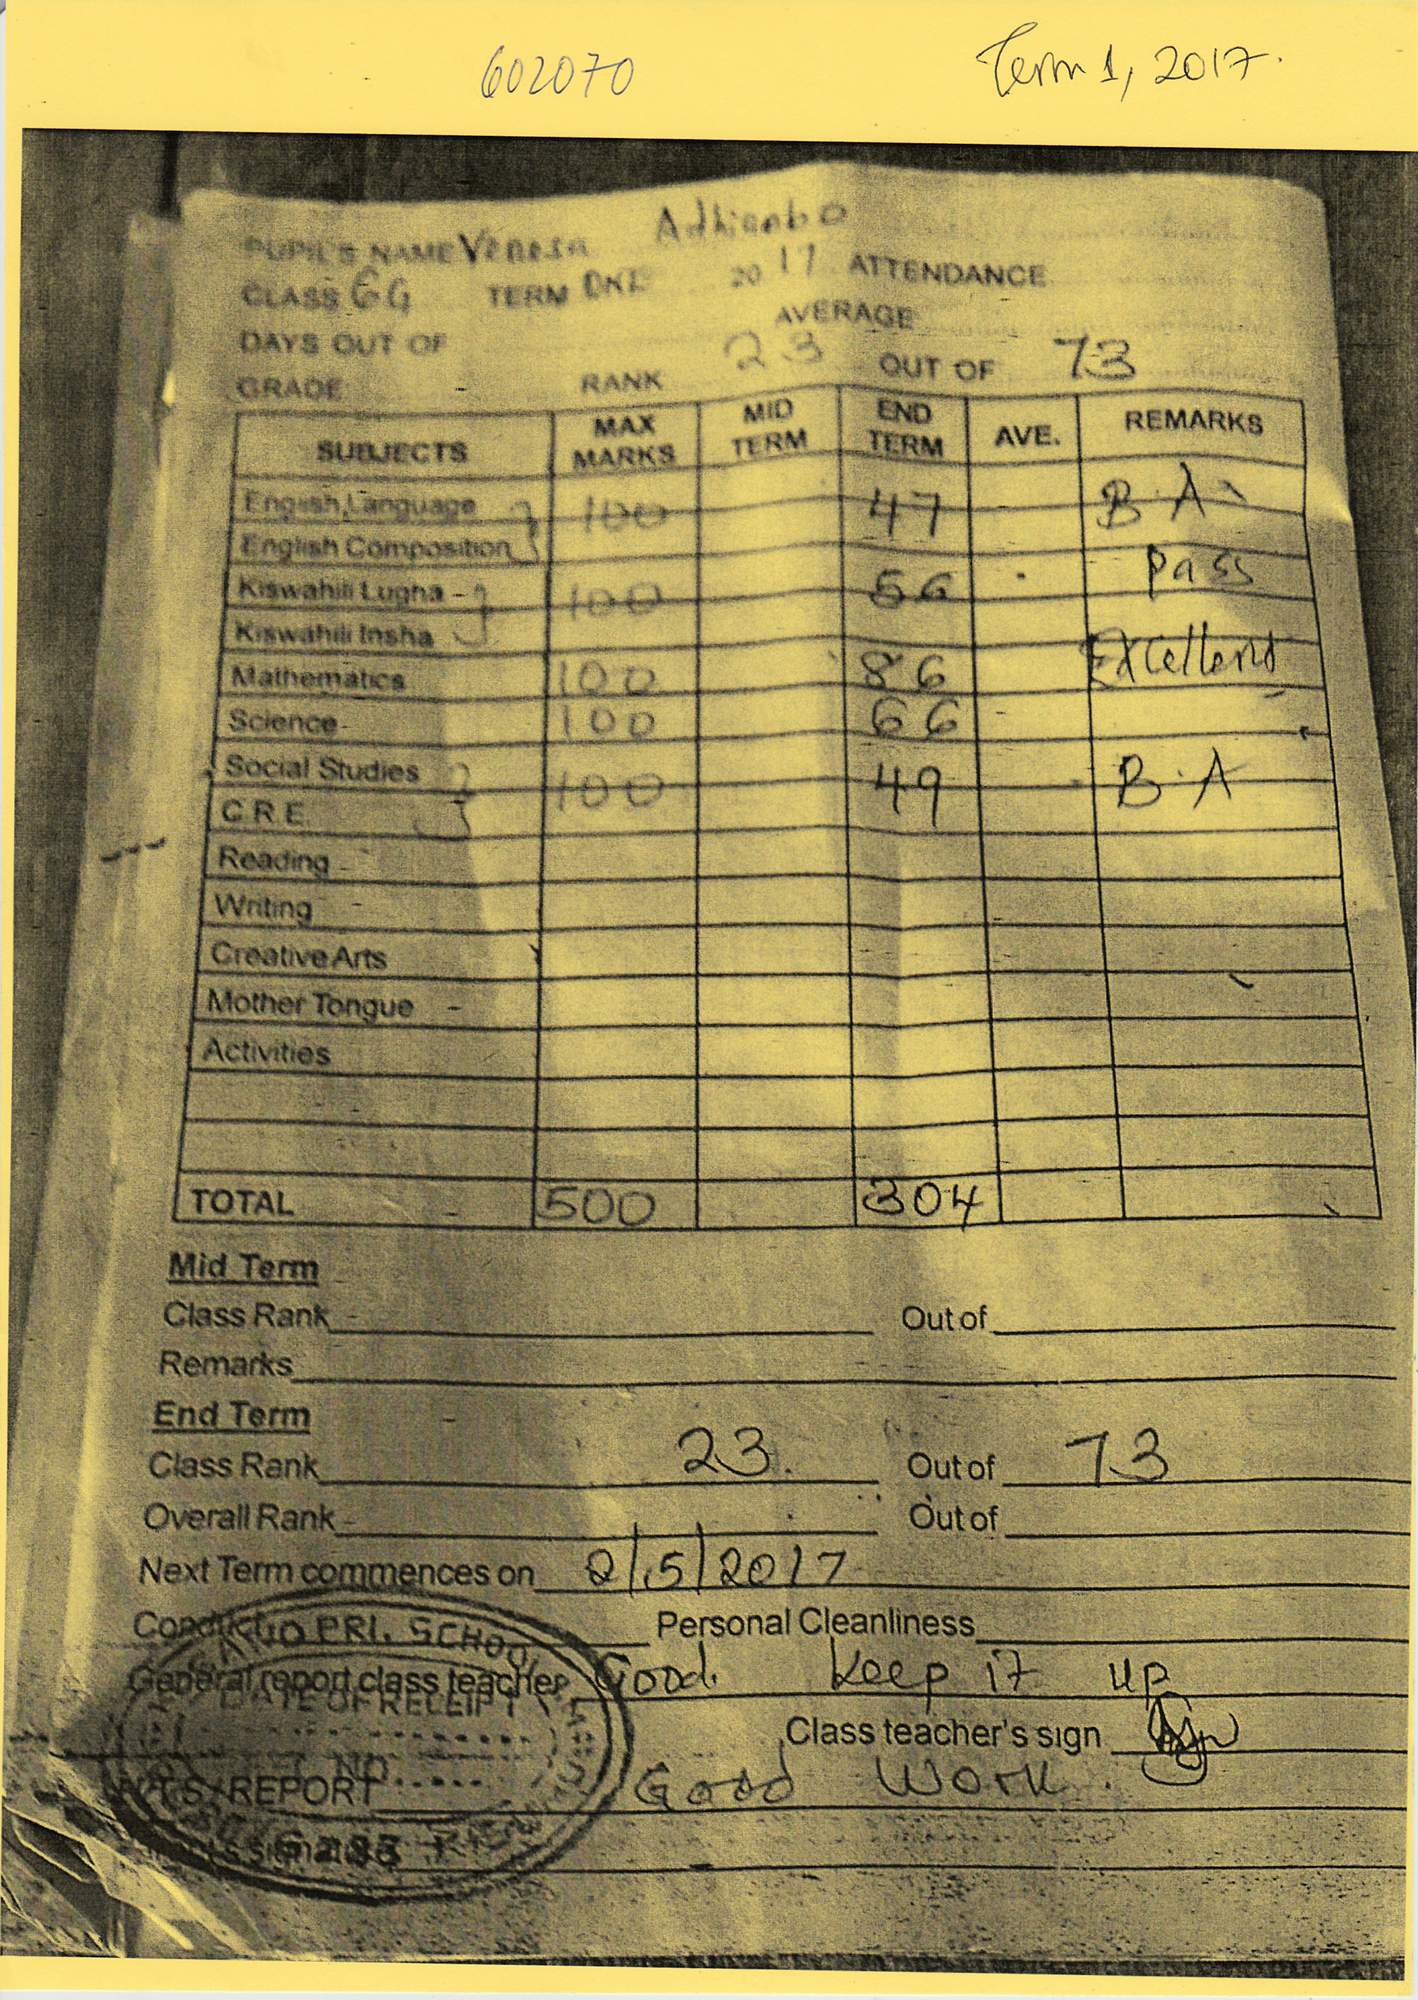 602070 Term 1, 2017.
PUPIL'S NAME Venesa Adhiambo
CLASS 6G TERM ONE 2017 ATTENDANCE
DAYS OUT OF AVERAGE
GRADE RANK 23 OUT OF 73
SUBJECTS MAX MARKS MID TERM END TERM AVE. REMARKS
English Language 100 47 B.A
English Composition
Kiswahili Lugha 100 56 Pass
Kiswahili Insha
Mathematics 100 86 Excellent
Science 100 66
Social Studies 100 49 B.A
C.R.E.
Reading
Writing
Creative Arts
Mother Tongue
Activities
TOTAL 500 304
Mid Term
Class Rank Out of
Remarks
End Term
Class Rank 23. Out of 73
Overall Rank Out of
Next Term commences on 2/5/2017
Conduct Personal Cleanliness
General report class teacher Good. Keep it up
PRI. SCHOOL
DATE OF RECEIPT
Class teacher's sign
NO.
REPORT Good Work.